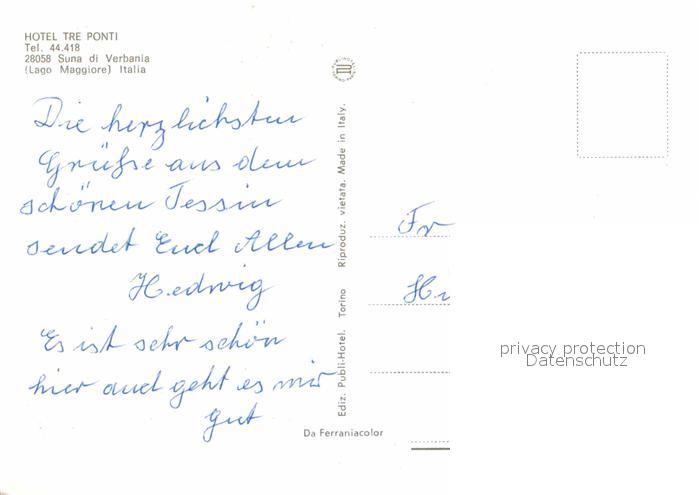 HOTEL TRE PONTI
Tel. 44.418
28058 Suna di Verbania
(Lago Maggiore) Italia
Die herzlichsten
Grüße aus dem
schönen Tessin
sendet Euch Allen
Hedwig
Es ist sehr schön
hier auch geht es mir
gut
Ediz. Publi-Hotel. Torino Riproduz. vietata. Made in Italy.
Da Ferraniacolor
Fr
privacy protection
Datenschutz